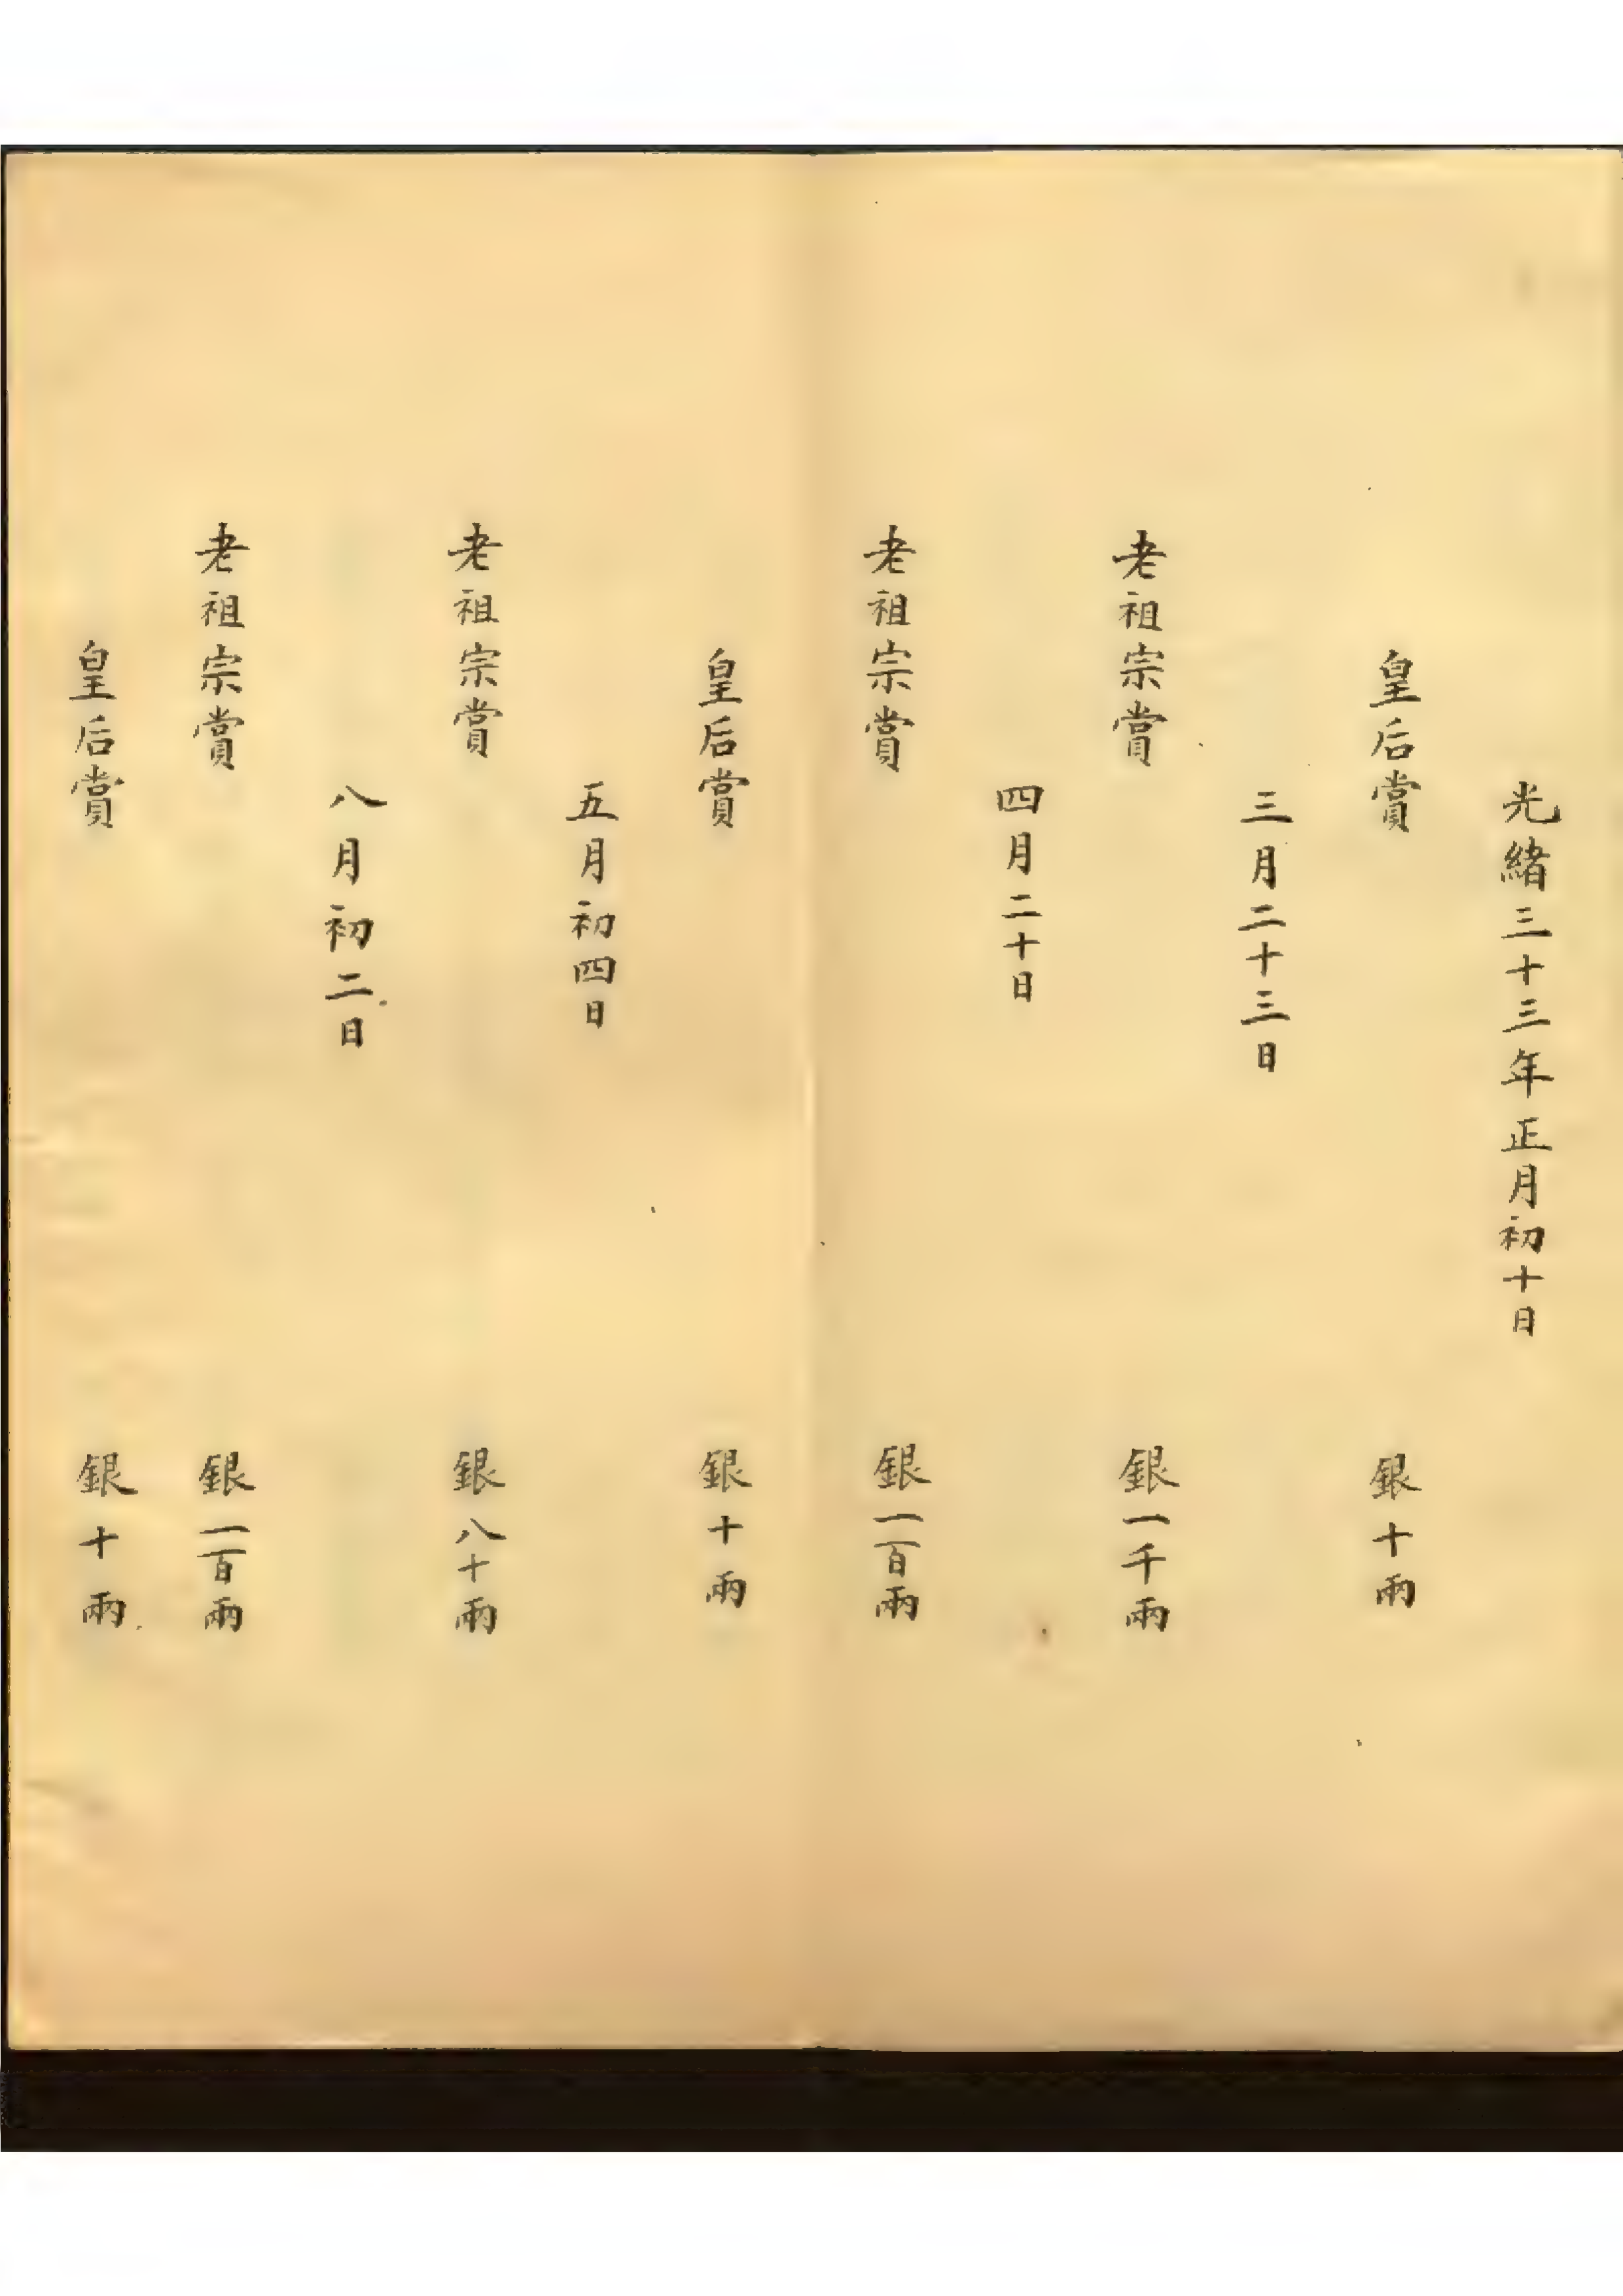 光緒三十三年正月初十日
皇后賞 銀十兩
三月二十三日
老祖宗賞 銀一千兩
四月二十日
老祖宗賞 銀一百兩
皇后賞 銀十兩
五月初四日
老祖宗賞 銀八十兩
八月初二日
老祖宗賞 銀一百兩
皇后賞 銀十兩